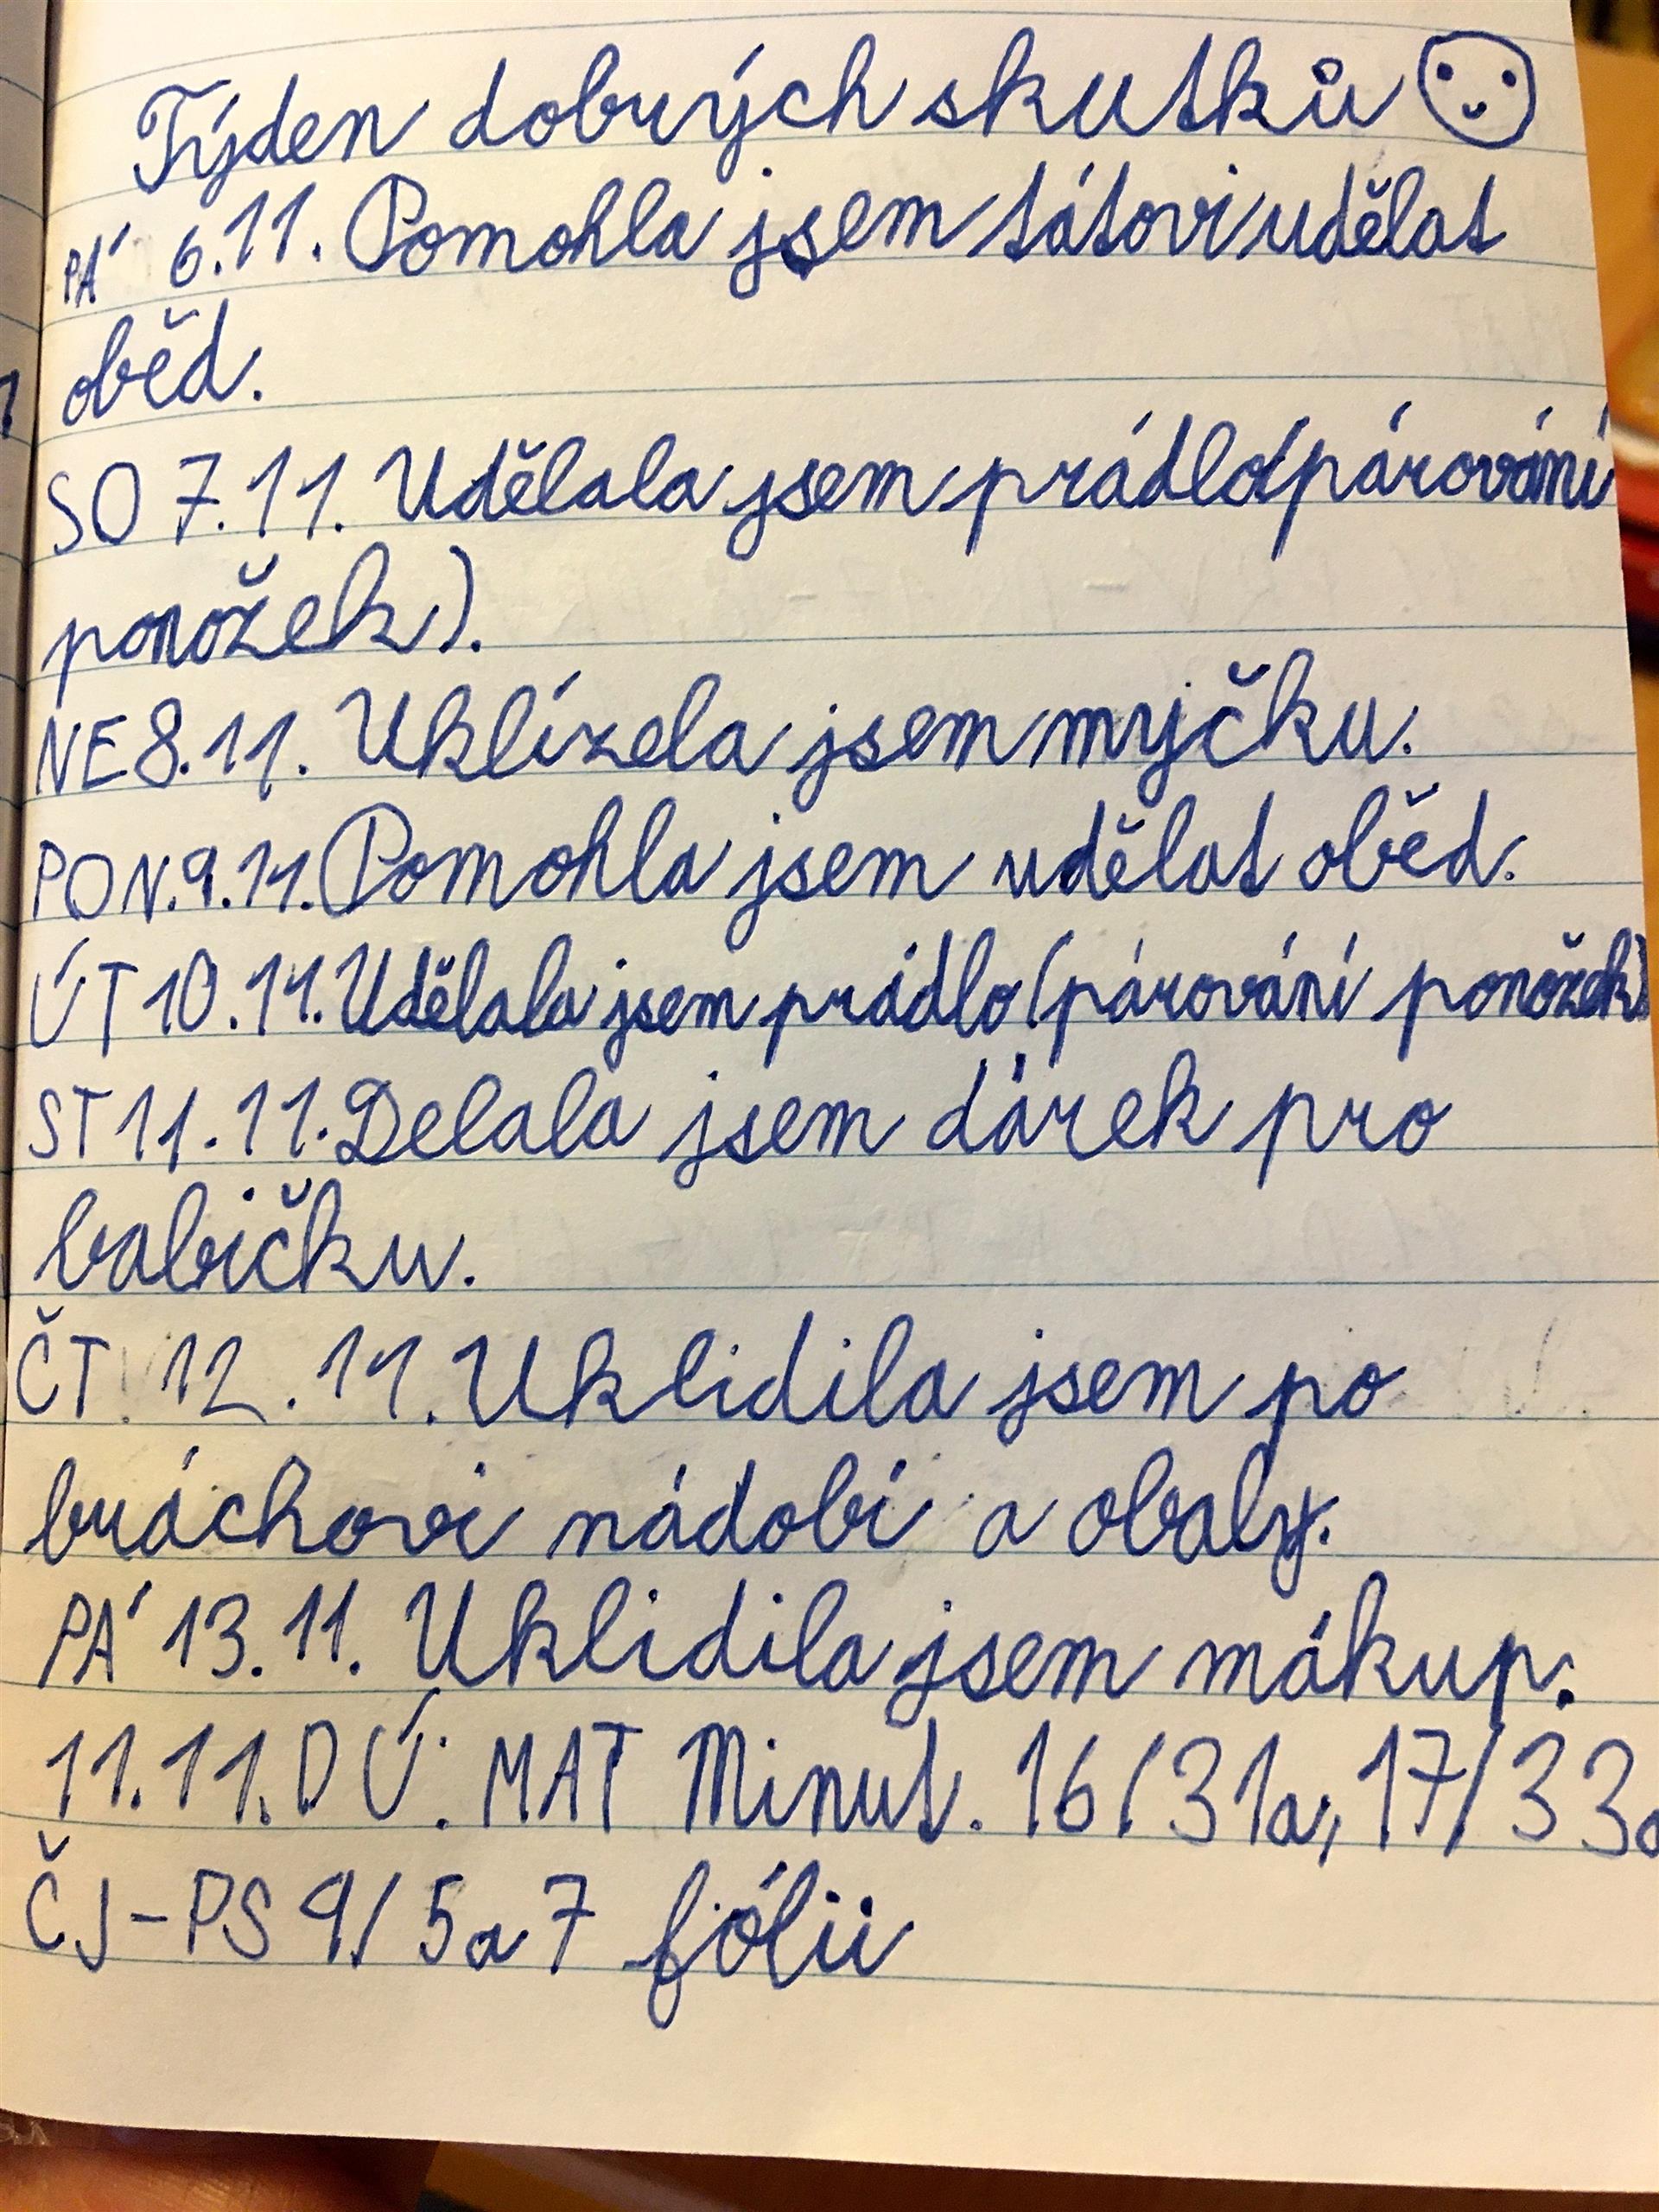 Týden dobrých skutků
PÁ 6.11. Pomohla jsem tátovi udělat
oběd.
SO 7.11. Udělala jsem prádlo(párování
ponožek).
NE 8.11. Uklízela jsem myčku.
PON.9.11. Pomohla jsem udělat oběd.
ÚT 10.11. Udělala jsem prádlo (párování ponožek)
ST 11.11. Delala jsem dárek pro
babičku.
ČT. 12.11. Uklidila jsem po
bráchovi nádobí a obaly.
PÁ 13.11. Uklidila jsem mákup.
11.11. DÚ: MAT Minut. 16/31a, 17/33a
ČJ-PS 9/5a7 fólii